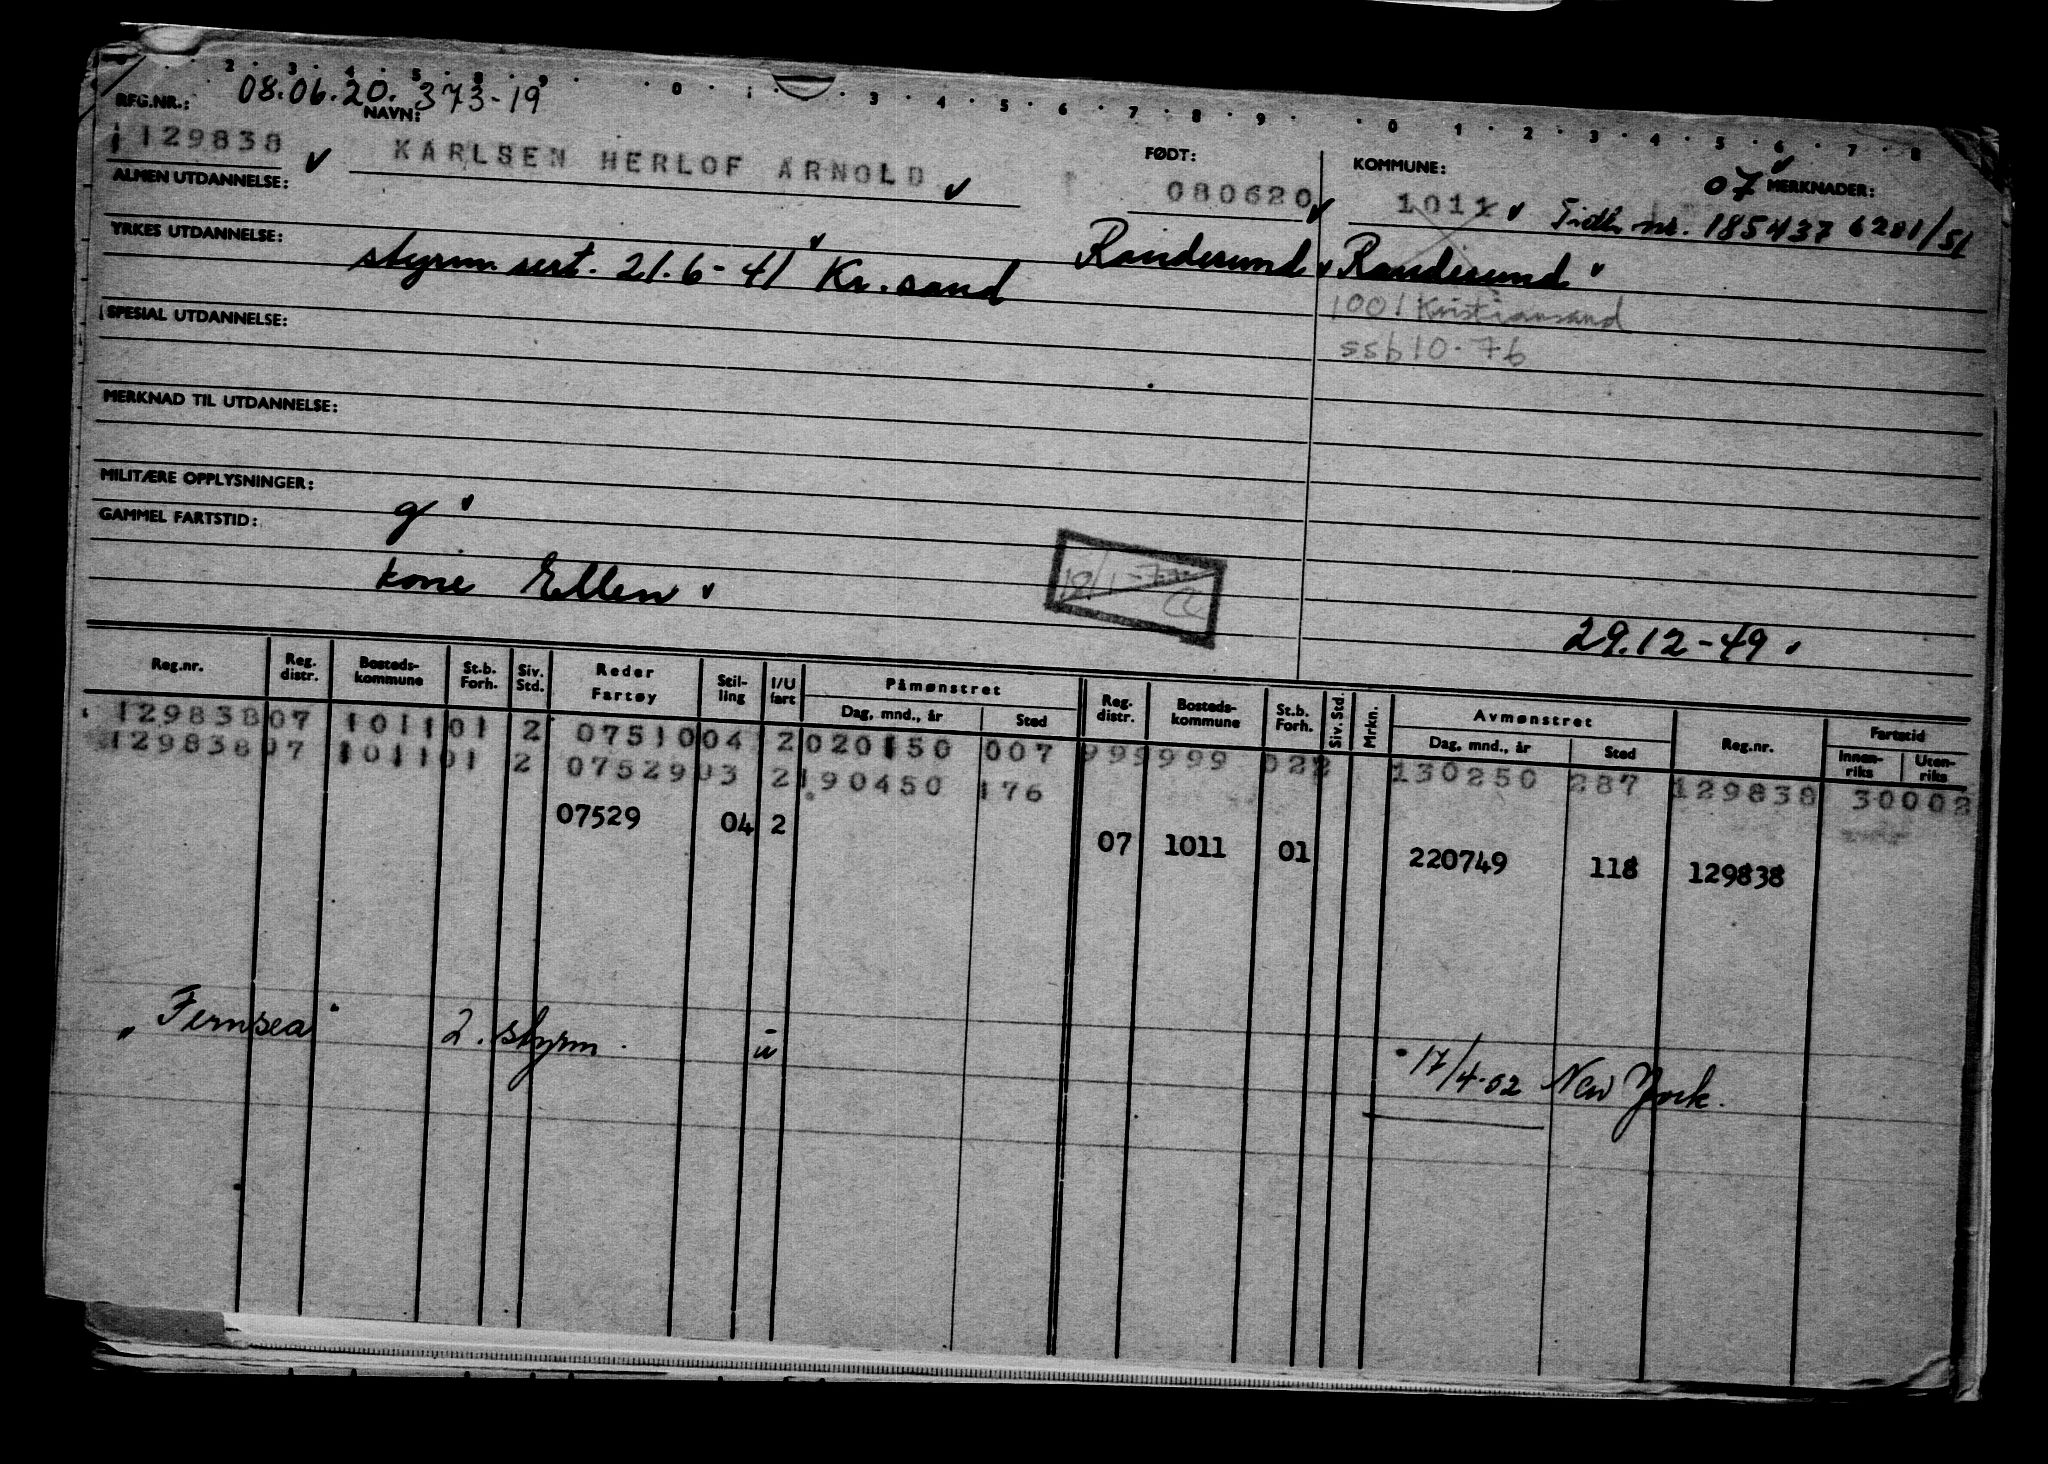 2 · 3 · 4 · 5 · 8 · 9 · · 0 · 1 · · 3 · 4 · 5 · 6 · 7 · 8 · 9 · · 0 · 1 · 2 · 3 · 4 · 5 · 6 · 7 · 8
08.06.20. 373-19
REG.NR.: NAVN: FØDT: KOMMUNE: 07 MERKNADER:
129838 KARLSEN HERLOF ARNOLD 080620 1011 Tidl. nr. 185437 6201/51
ALMEN UTDANNELSE:
YRKES UTDANNELSE: styrm. sert. 21.6-41 Kr.sand Randesund Randesund
1001 Kristiansand
SPESIAL UTDANNELSE: ssb 10.76
MERKNAD TIL UTDANNELSE:
MILITÆRE OPPLYSNINGER: g
GAMMEL FARTSTID:
kone Ellen
29.12-49
Reg.nr. Reg. distr. Bosteds-kommune St.b. Forh. Siv. Std. Reder Fartøy Stil-ling I/U fart Påmønstret Dag, mnd., år Sted Reg. distr. Bosteds-kommune St.b. Forh. Siv. Std. Mrkn. Avmønstret Dag, mnd., år Sted Reg.nr. Fartstid Innen-riks Uten-riks
129838 07 1011 01 2 07510 04 2 020150 007 999 999 022 130250 287 129838 30002
129838 07 1011 01 2 07529 03 2 190450 176
07529 04 2 07 1011 01 220749 118 129838
"Fernsea" 2. styrm. u 17/4-52 New York.